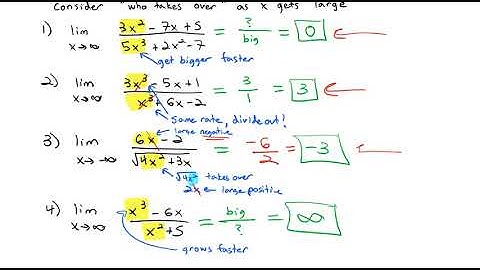 Consider "who takes over" as x gets large
1) lim x→∞ 3x² - 7x + 5 / 5x³ + 2x² - 7 = ? / big = 0
get bigger faster
2) lim x→∞ 3x³ - 5x + 1 / x³ + 6x - 2 = 3 / 1 = 3
same rate, divide out!
large negative
3) lim x→ -∞ 6x - 2 / √4x² + 3x = -6 / 2 = -3
√4x² takes over
2x ← large positive
4) lim x→∞ x³ - 6x / x² + 5 = big / ? = ∞
grows faster